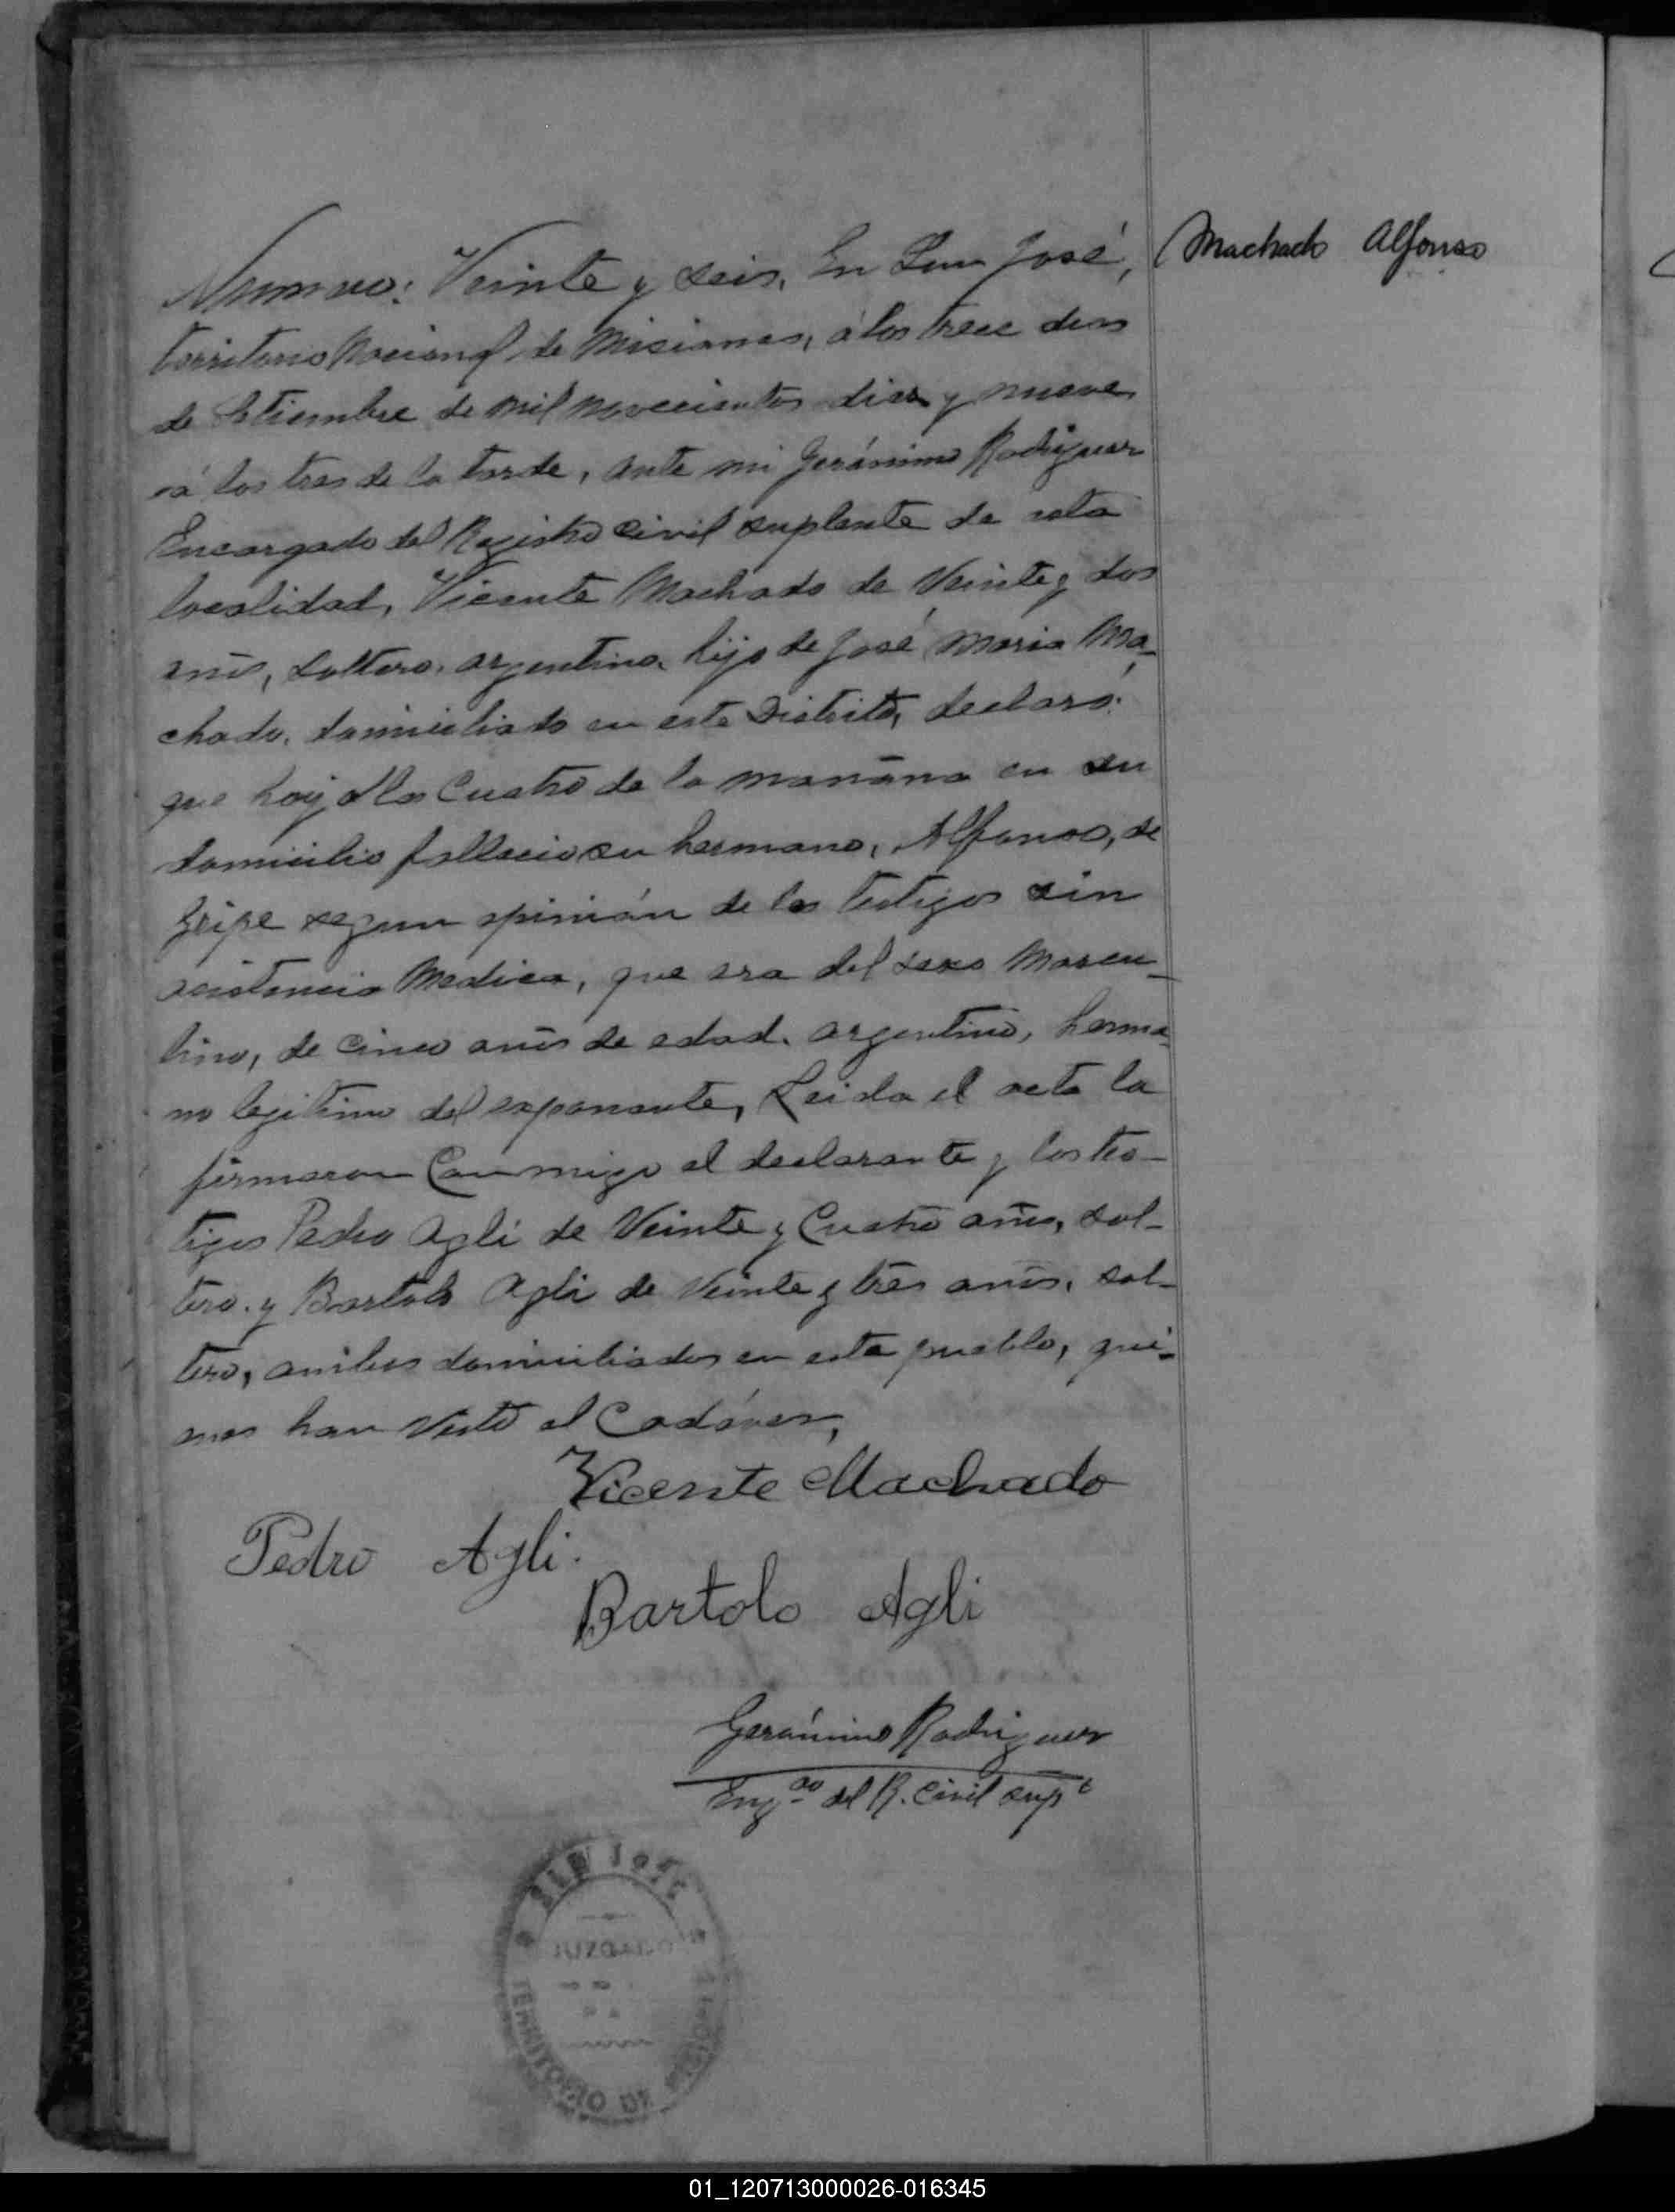 Numero: Veinte y seis. En San José,
Machado Alfonso
territorio Nacional de Misiones, á los trece dias
de Setiembre de mil novecientos diez y nueve
á las tres de la tarde, ante mi Gerónimo Rodriguez
Encargado del Registro Civil suplente de esta
localidad, Vicente Machado de Veinte y dos
años, soltero, argentino, hijo de José Maria Ma-
chado, domiciliado en este Distrito, declaró:
que hoy á las Cuatro de la mañana en su
domicilio fallecio su hermano, Alfonso, de
gripe segun opinión de los testigos sin
asistencia Medica, que era del sexo Mascu-
lino, de cinco años de edad, argentino, herma-
no legitimo del exponente, Leida el acta la
firmaron Conmigo el declarante y los tes-
tigos Pedro Agli de Veinte y Cuatro años, sol-
tero, y Bartolo Agli de Veinte y tres años, sol-
tero, ambos domiciliados en este pueblo, quie-
nes han visto el Cadáver,
Vicente Machado
Pedro Agli.
Bartolo Agli
Gerónimo Rodriguez
Engdo del R. Civil supte
SAN JOSE
JUZGADO
TERRITORIO DE MISIONES
01_120713000026-016345